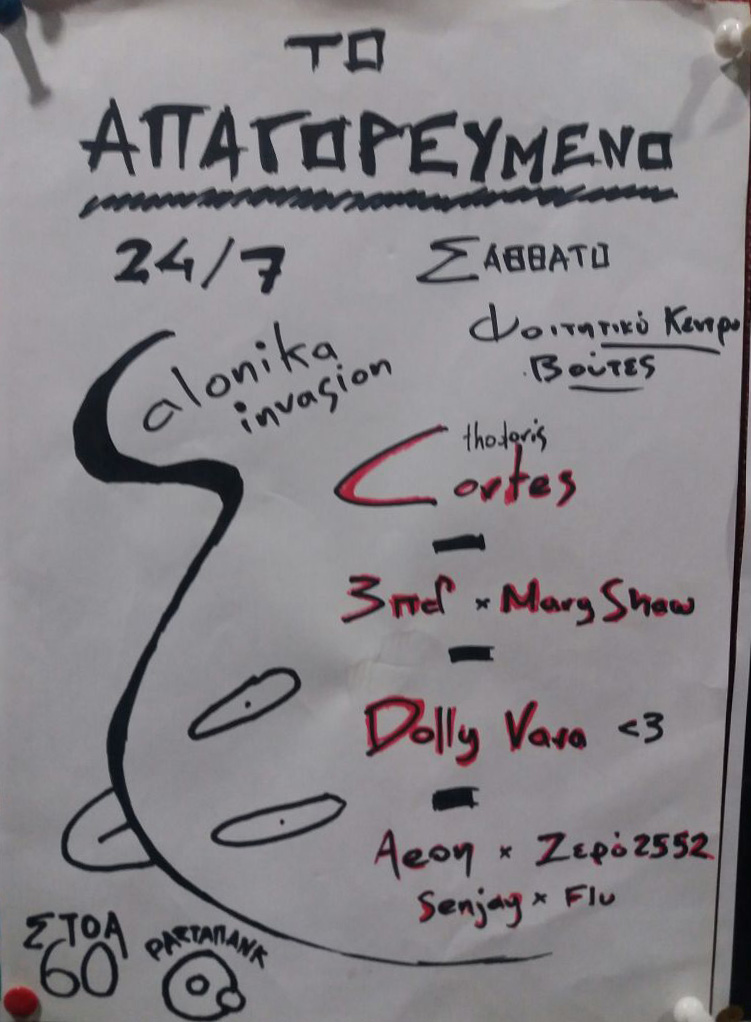 ΤΟ
ΑΠΑΓΟΡΕΥΜΕΝΟ
24/7 ΣΑΒΒΑΤΟ
Φοιτητικό Κεντρο
Βούτες
Salonika
invasion
thodoris
Cortes
3πσ x Mary Shaw
Dolly Vara <3
Aeon x Ζερό2552
Senjay x Flu
ΣΤΟΑ
60
ΡΑΣΤΑΠΑΝΚ